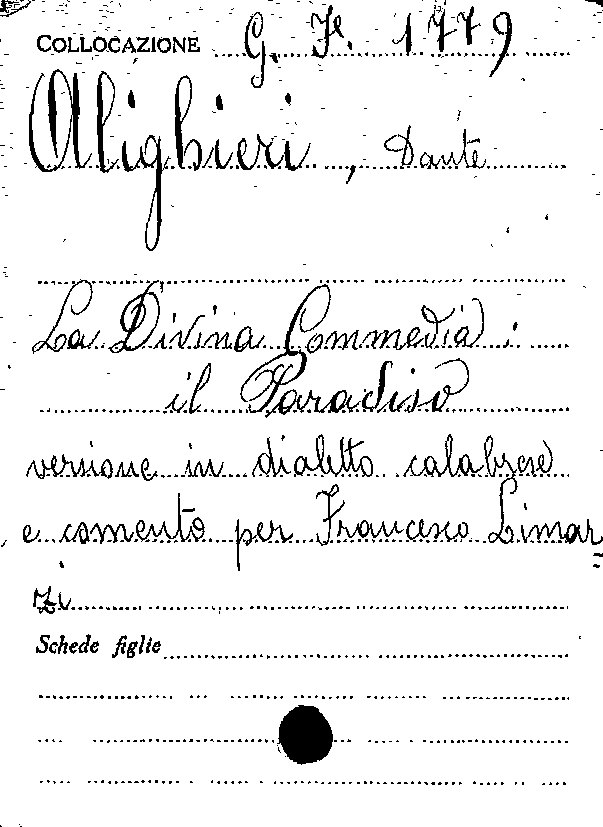 COLLOCAZIONE G. Fe. 1779
Alighieri, Dante
La Divina Commedia :
il Paradiso
versione in dialetto calabrese
e comento per Francesco Limar
zi
Schede figlie